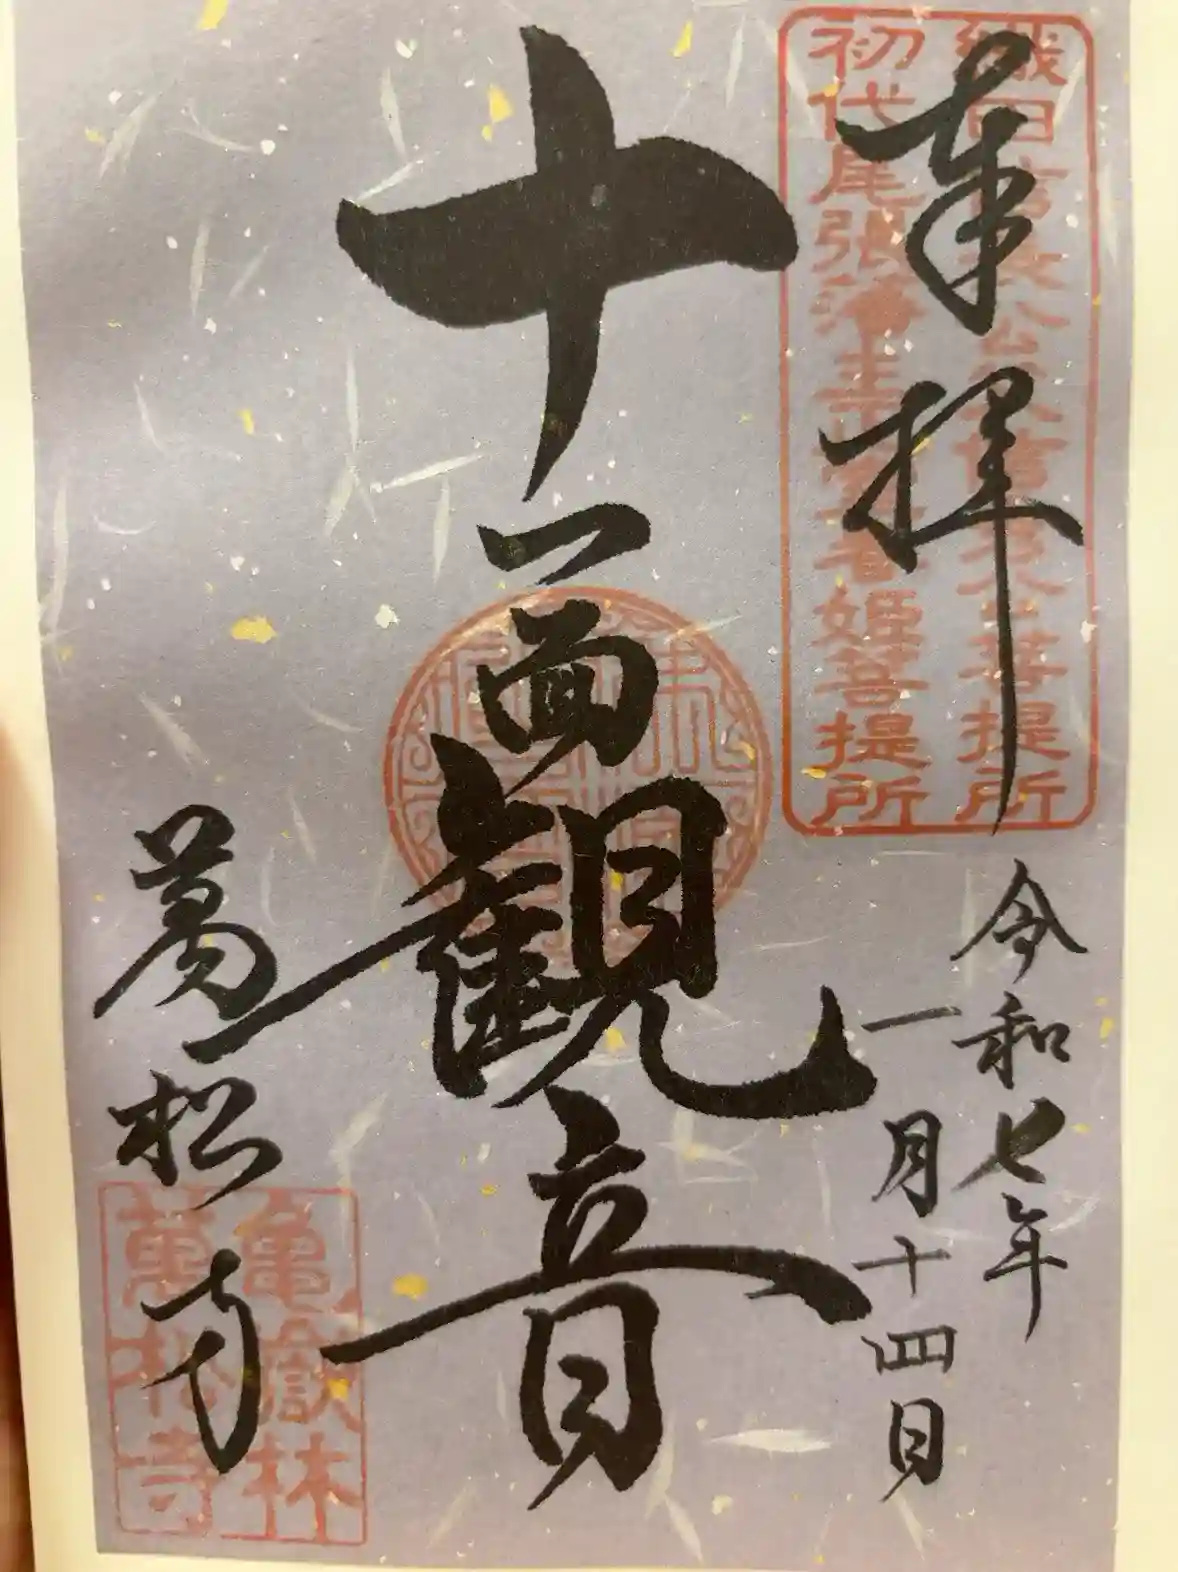 奉拝
織田信長公父 菩提所
初代尾張藩主 姫菩提所
令和七年
一月十四日
十一面観音
萬松寺
亀嶽林
萬松寺